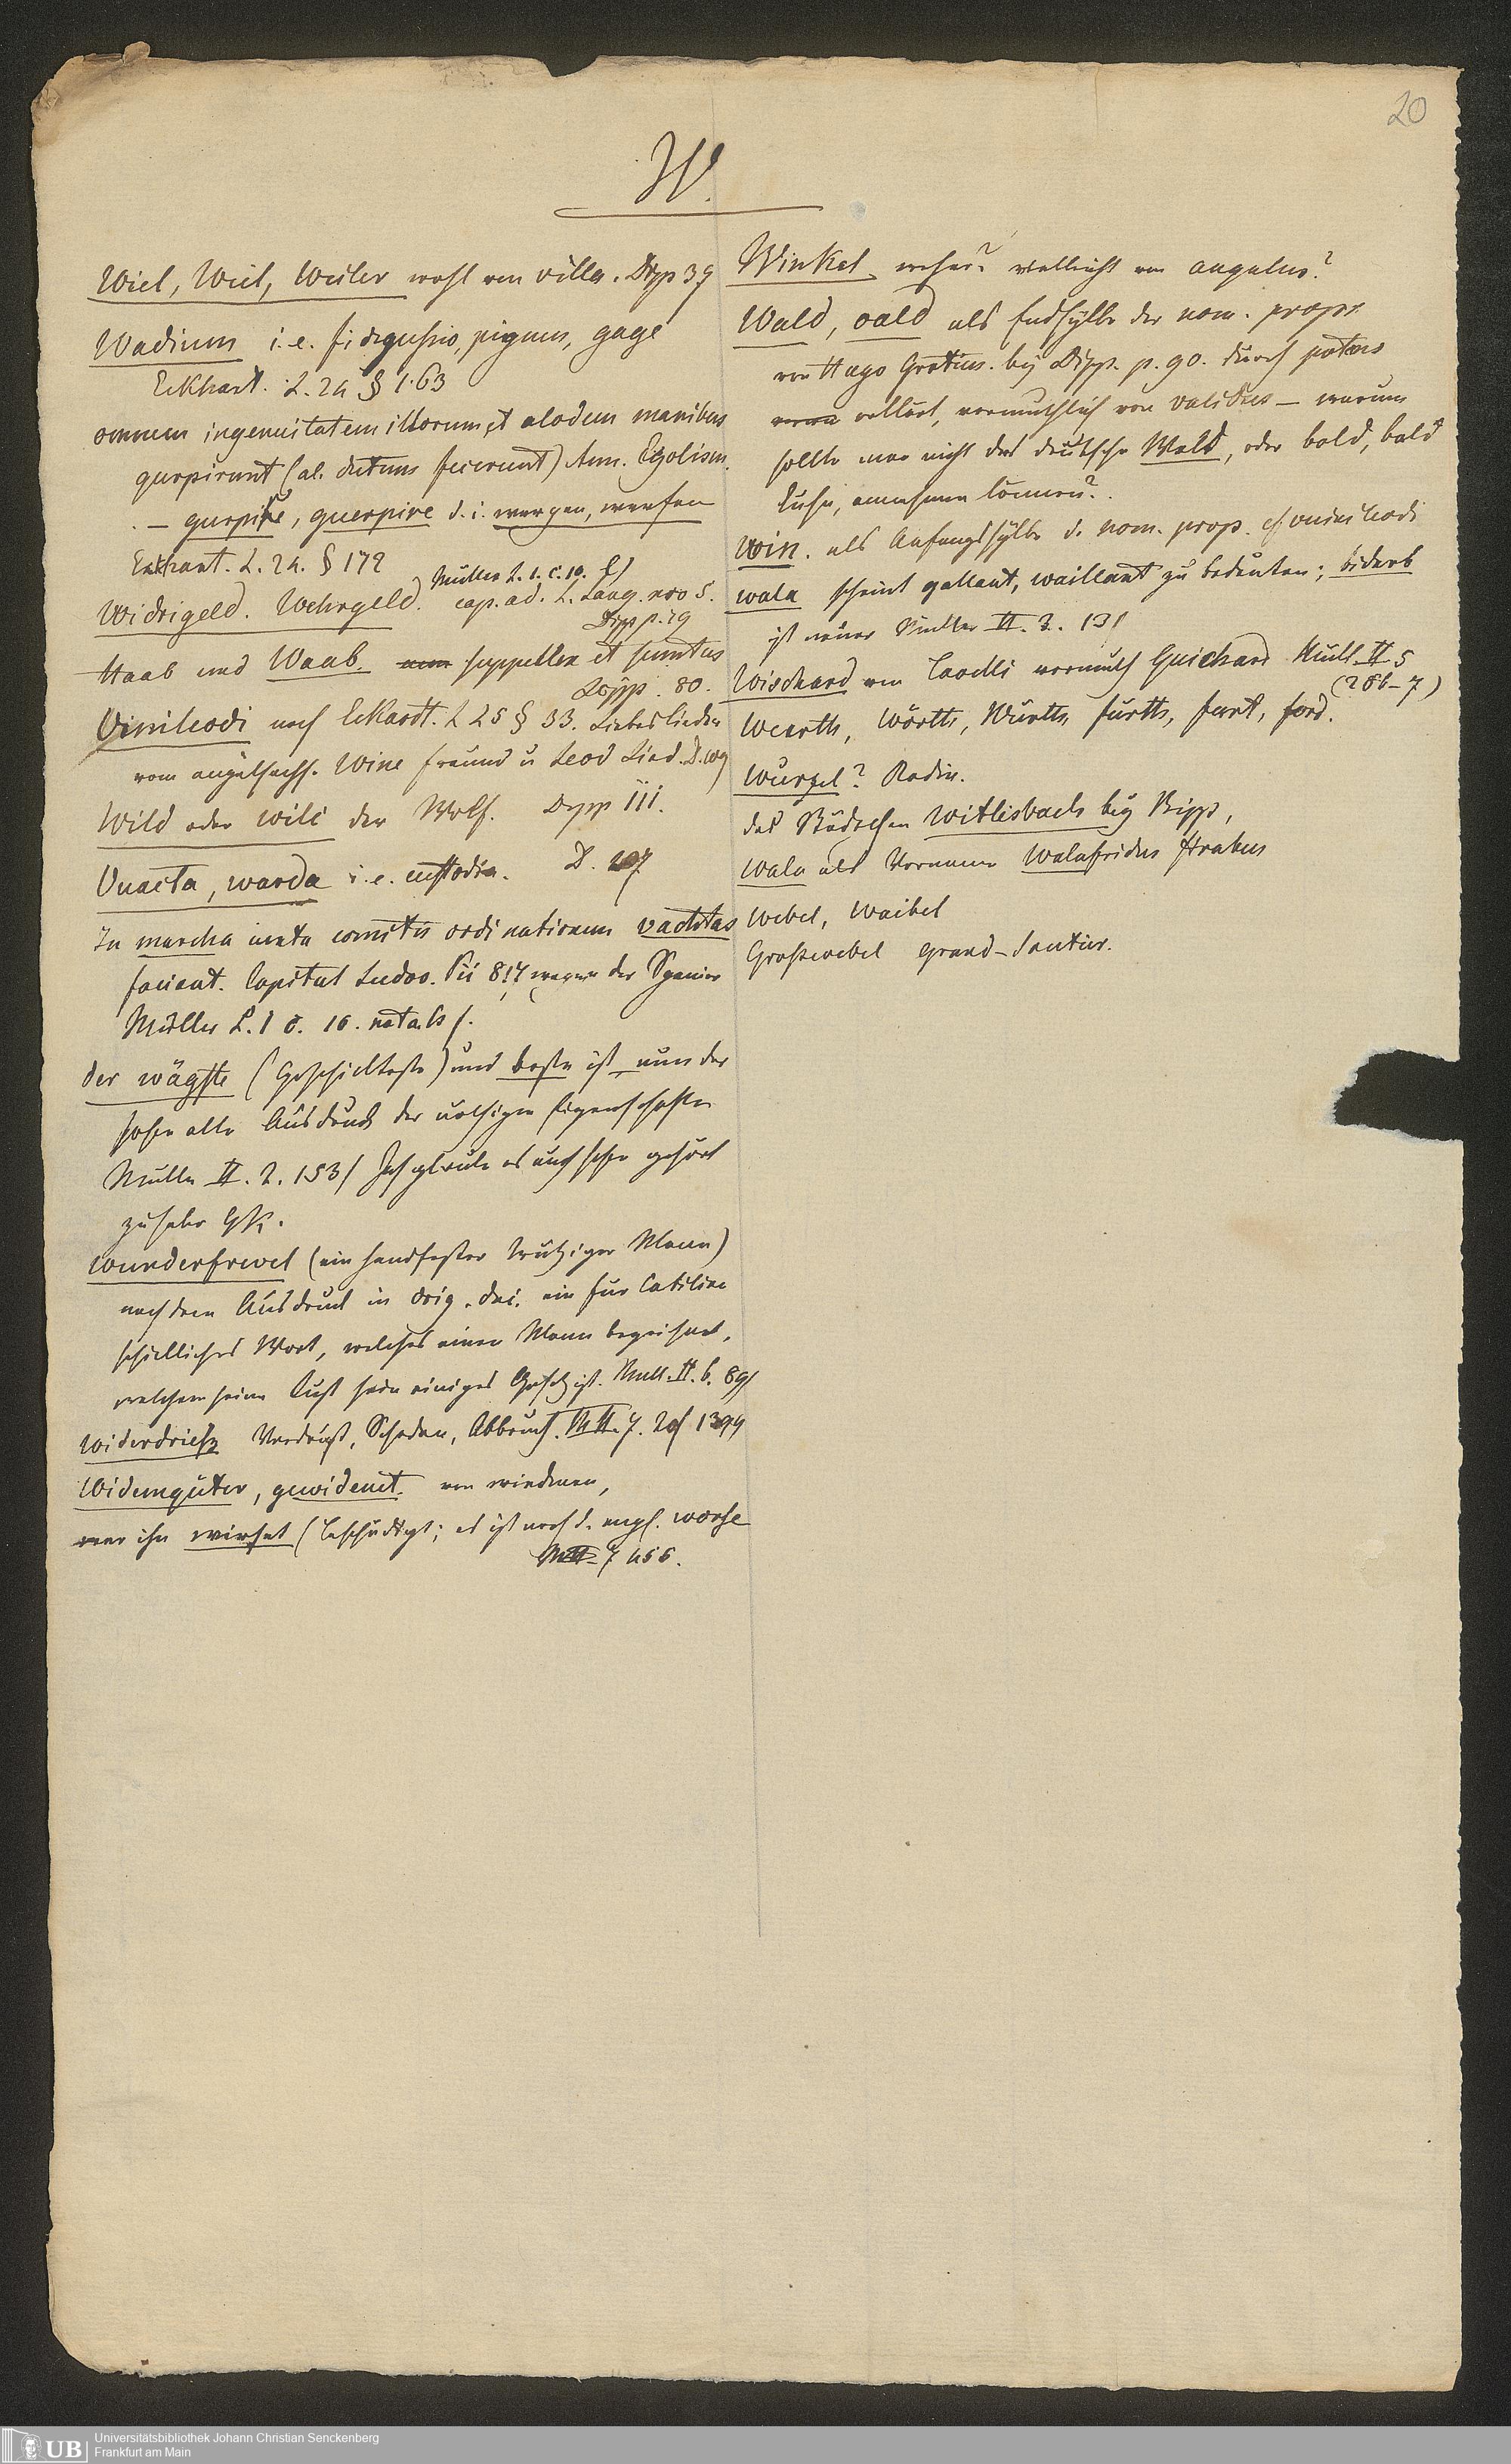 20
W.
Wiel, Wiel, Weiler wohl von villa. Dipp 39
Wadium i.e. fidejussio, pignus, gage
Eckhart. L. 24 § 163
omnem ingenuitatem illorum et alodem manibus
gurpirunt (al. dutuns fecerunt) Ann. Egolism.
— gurpire, guerpire d. i. wergen, werfen
Eckhart. L. 24. § 172
Widrigeld. Wehrgeld. Müller L. 1. C. 10.
cap. ad. L. Lang. 5.
Dipp p. 79
Haab und Waab. suppellex et sumtus
Dipp. 80.
Vinileodi nach Eckardt. L 25 § 33. Liebeslieder
vom angelsachs. Wine freund u Leod Lied. D. 109
Wild oder wilt der Wolf. Dipp 111.
Vuacta, warda i.e. custodia. D. 107
In marcha iuxta comitis ordinationem vachtas
faciant. Capitul Ludov. Pii 817 wegen der Spanier
Müller L. 1 C. 10. nota
der wägste (Geschickteste) und beste ist nun der
hohe alte Ausdruck der nöthigen Eigenschaften
Müller II. 2. 153/ Ich glaube es auch schon gehört
zu haben
Wunderfrevel (ein handfester trutziger Mann)
nach dem Ausdruck in orig. ein für Catilina
schickliches Wort, welches einen Mann bezeichnet,
welchem seine Lust sein einiges Gesetz ist. Mull. II. 6. 89/
Widerdriess Verdruß, Schaden, Abbruch. M II. 7. 20/ 1394
Widemgüter, gewidemet. von wiedmen,
wer ihn wirset (beschädigt; es ist noch d. engl. worse
M II 7 456.
Winkel, woher? vielleicht von angulus?
Wald, oald als Endsylbe der nom. propr.
von Hugo Grotius. bey Dipp. p. 90. durch potens
erklärt, vermuthlich von validus — warum
sollte man nicht das deutsche Wald, oder bold, bald
kühn, annehmen können?
Win. als Anfangssylbe d. nom. prop. cf vinileodi
Wala scheint gallant, vaillant zu bedeuten; biderb
ist neuer Müller II. 2. 131
Wischard von vermuth Guichard Müll II 5
(206-7)
Weerth, Wörth, Würth, furth, furt, ford.
Wurzel? Radix.
das Städtchen Witlisbach bey Bipp,
Wala als Vorname Walafridus Strabus
Webel, Waibel
Großwebel grand-Sautier.
Universitätsbibliothek Johann Christian Senckenberg
Frankfurt am Main
UB